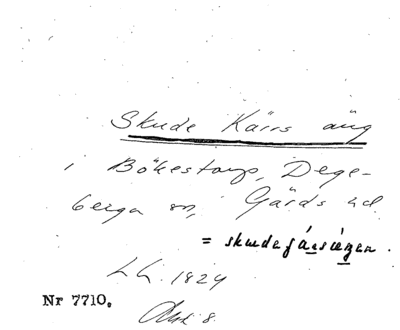 Skude Kärrs äng
i Bökestorp, Dege-
berga sn, Gärds hd.
= skudefársiègen.
LG. 1829
Akt 8.
Nr 7710.